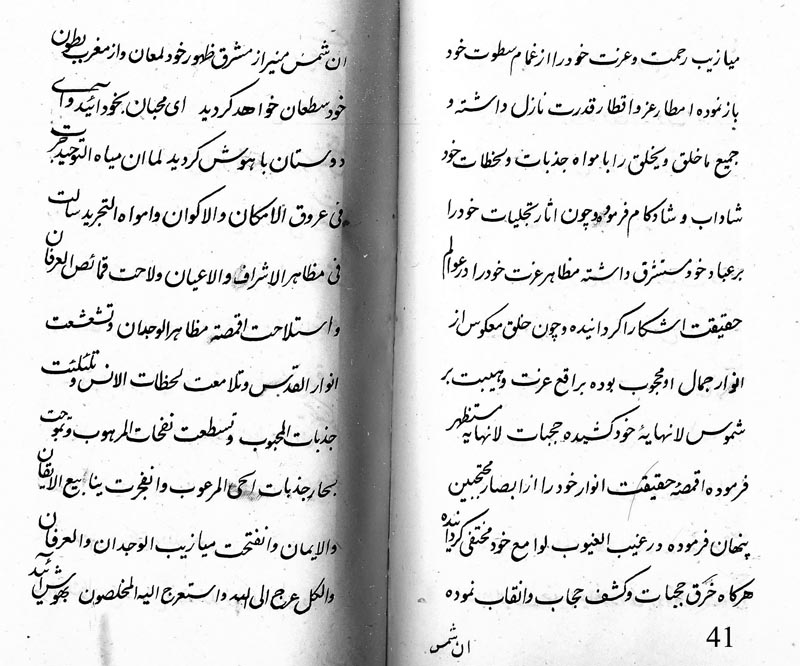 میازیب رحمت و عزت خود را از غمام سطوت خود
باز نموده امطار عز و اقطار قدرت نازل داشته و
جمیع ما خلق و یخلق را بامواه جذبات و لحظات خود
شاداب و شادکام فرموده و چون اثار تجلیات خود را
بر عباد خود مستشرق داشته مظاهر عزت خود را در عوالم
حقیقت اشکارا کردانیده و چون خلق معکوس از
انوار جمال او محجوب بوده براقع عزت و هیبت بر
شموس لانهایهٔ خود کشیده حجبات لانهایه مستظهر
فرموده اقمصهٔ حقیقت انوار خود را از ابصار محتجبین
پنهان فرموده در غیب الغیوب لوامع خود مختفی کردانیده
هرکاه خرق حجبات و کشف حجاب و انقاب نموده
ان شمس
41
ان شمس منیر از مشرق ظهور خود لمعان و از مغرب بطون
خود سطعان خواهد کردید ای محبان بخود ائید و ای
دوستان با هوش کردید لما ان میاه التوحید جرت
فی عروق الامکان والاکوان وامواه التجرید سالت
فی مظاهر الاشراف والاعیان ولاحت قمائص العرفان
واستلاحت اقمصة مظاهر الوجدان وتشعشعت
انوار القدس وتلامعت لحظات الانس وتلئلئت
جذبات المحبوب وتسطعت نفحات المرهوب وتموجت
بحار جذبات الحی المرعوب وانفجرت ینابیع الایقان
والایمان وانفتحت میازیب الوجدان والعرفان
والکل عرج الی الله واستعرج الیه المخلصون بهوش ائید